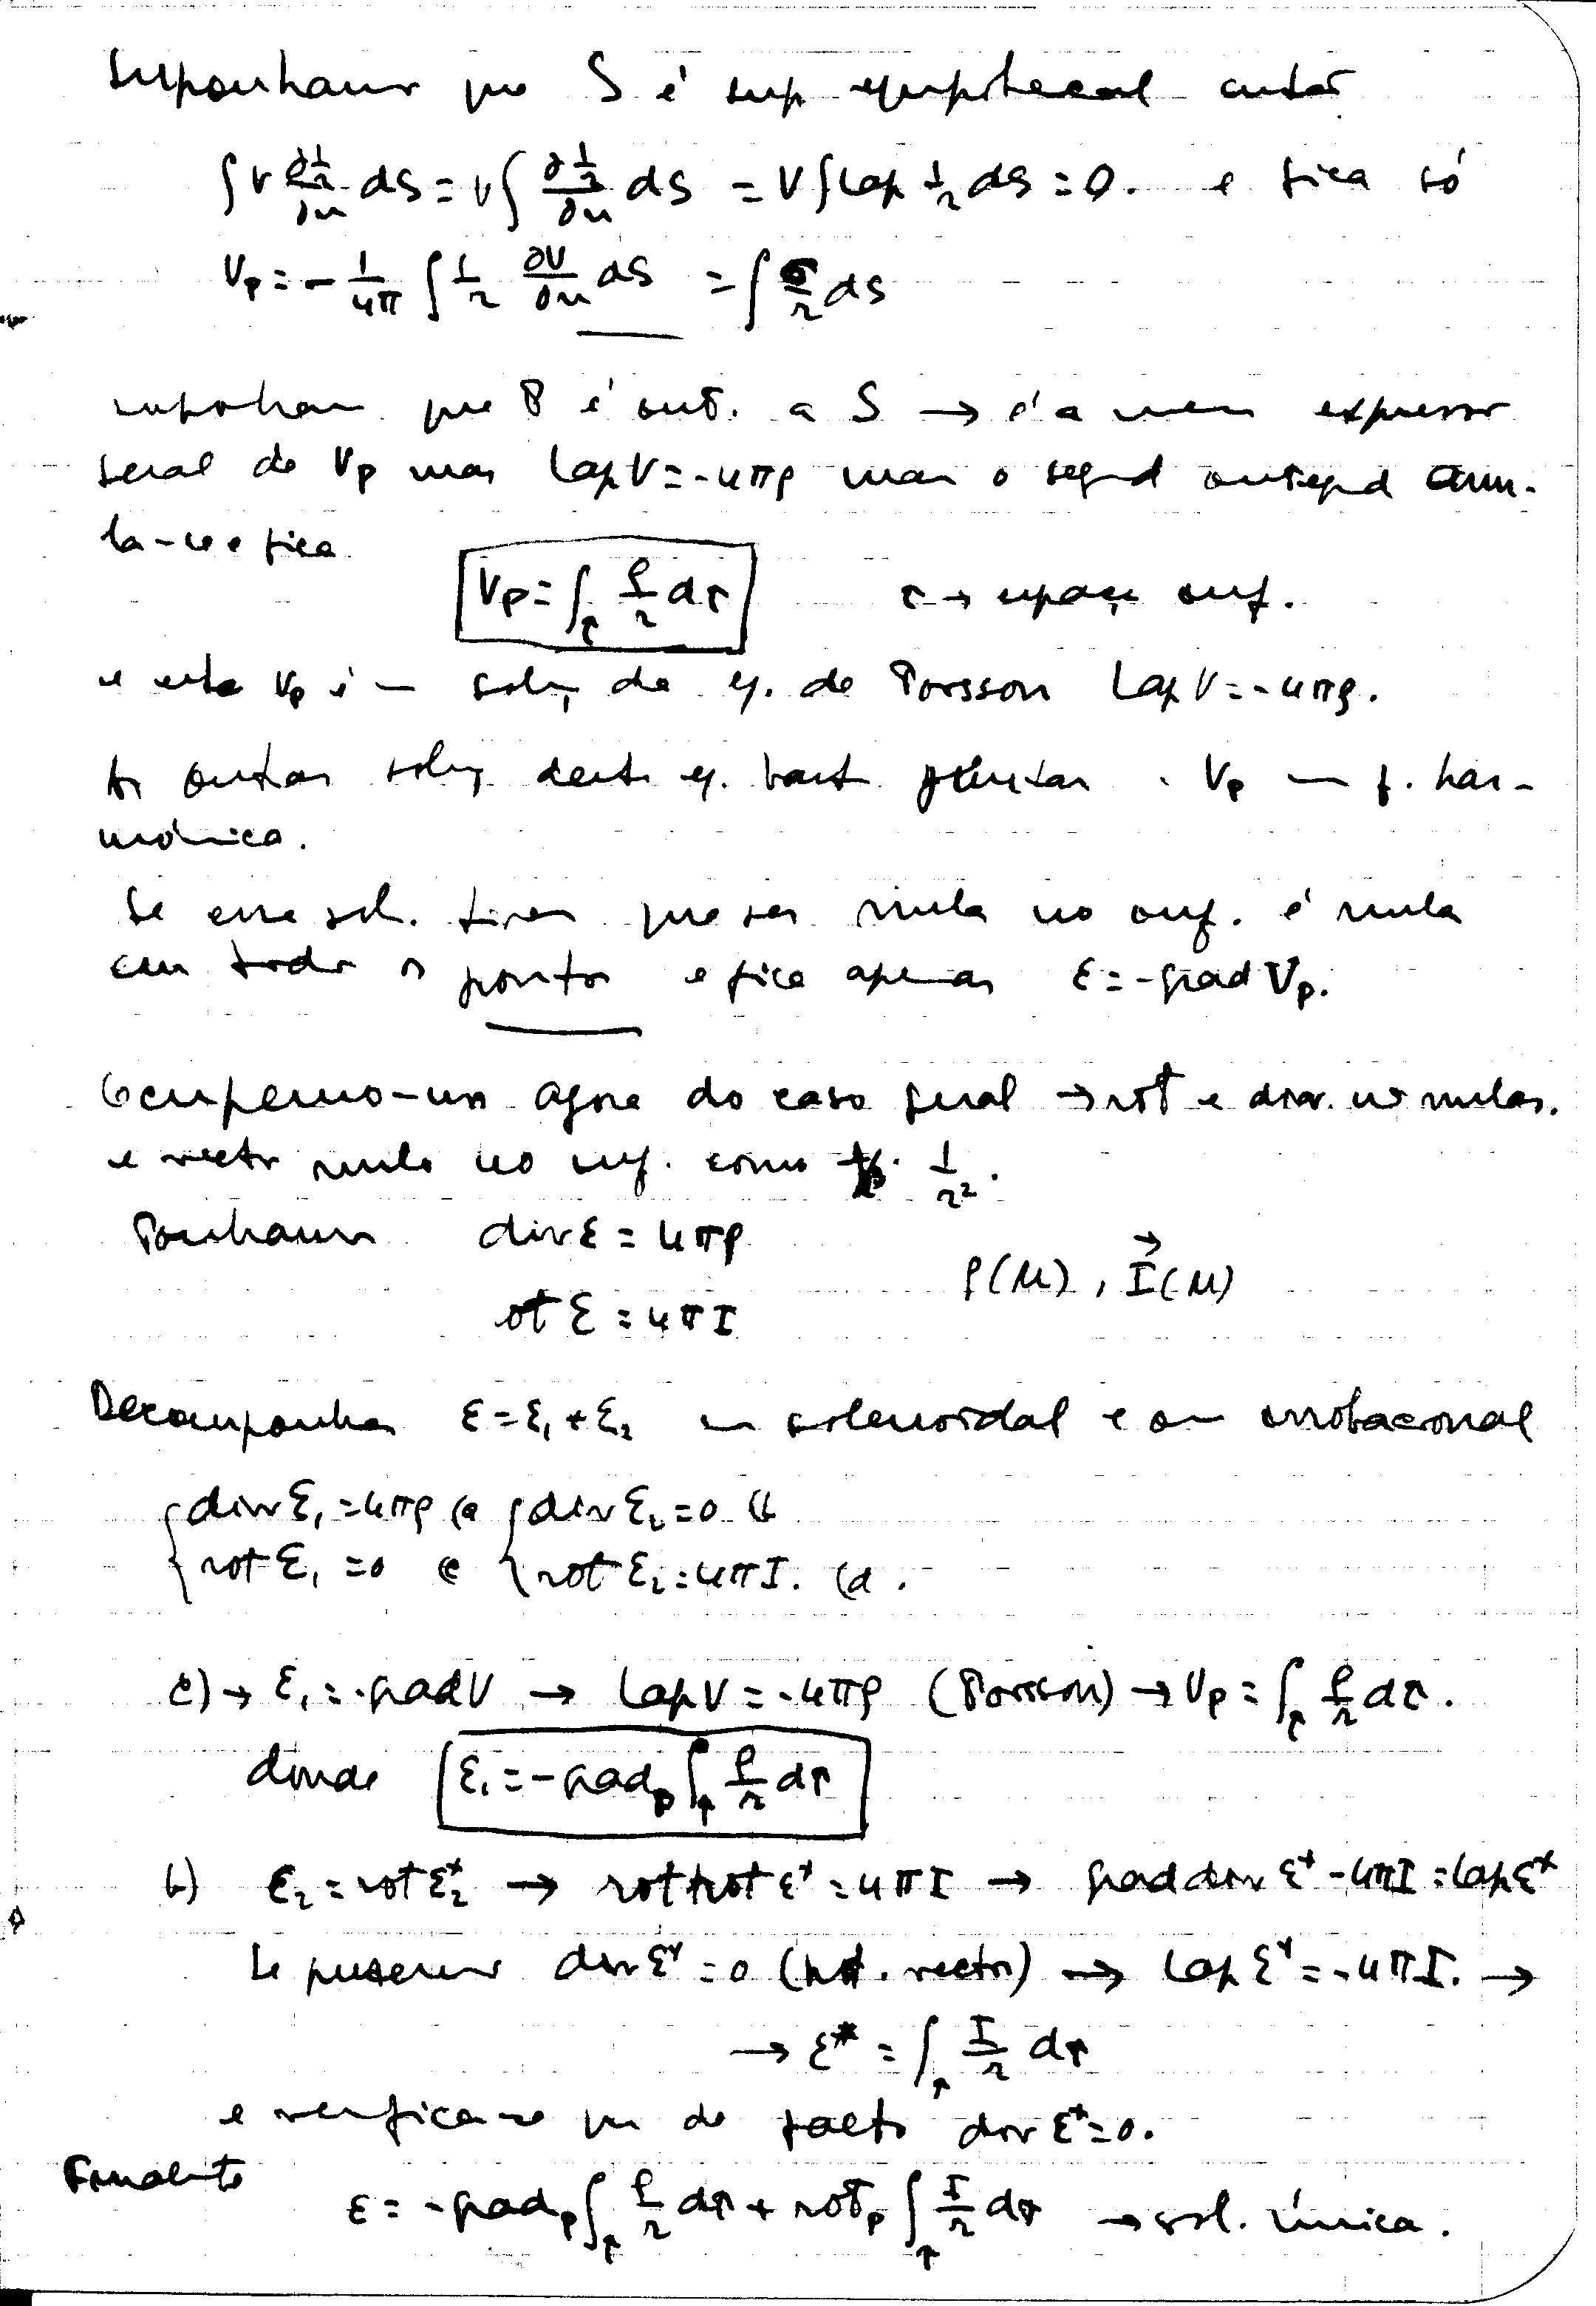 Suponhamos que S é sup equipotencial então
∫V ∂(1/r)/∂n dS = V∫ ∂(1/r)/∂n dS = V∫Lap 1/r dS = 0. e fica só
Vp = -1/4π ∫ 1/r ∂V/∂n dS = ∫ σ/r dS
que P é ext. a S → é a mesma expressão
geral de Vp mas Lap V = -4πρ mas o segd integral anu-
la-se e fica
Vp = ∫τ ρ/r dτ τ → espaço inf.
e esta Vp é a soluç da eq. de Poisson Lap V = -4πρ.
As outras soluç desta eq. bast juntar a Vp f. har-
mónica.
Se essa sol. tiver que ser nula no inf. é nula
em todos os pontos e fica apenas ε = -grad Vp.
Ocupemo-nos agora do caso geral → rot e div. nulas.
e vector nulo no inf. como 1/r².
Ponhamos div ε = 4πρ
ρ(M), I⃗(M)
rot ε = 4πI
Decomponha ε = ε₁ + ε₂ um solenoidal e o irrotacional
{ div ε₁ = 4πρ (a { div ε₂ = 0 (b
{ rot ε₁ = 0 (c { rot ε₂ = 4πI. (d.
c) → ε₁ = -grad V → Lap V = -4πρ (Poisson) → Vp = ∫τ ρ/r dτ.
donde ε₁ = -gradp ∫τ ρ/r dτ
b) ε₂ = rot ε₂* → rot rot ε* = 4πI → grad div ε* - 4πI = lap ε*
Se pusermos div ε* = 0 (pot. vector) → Lap ε* = -4πI. →
→ ε* = ∫τ I/r dτ
e verifica-se que de facto div ε* = 0.
Finalmente
ε = -gradp ∫τ ρ/r dτ + rotp ∫τ I/r dτ → sol. única.